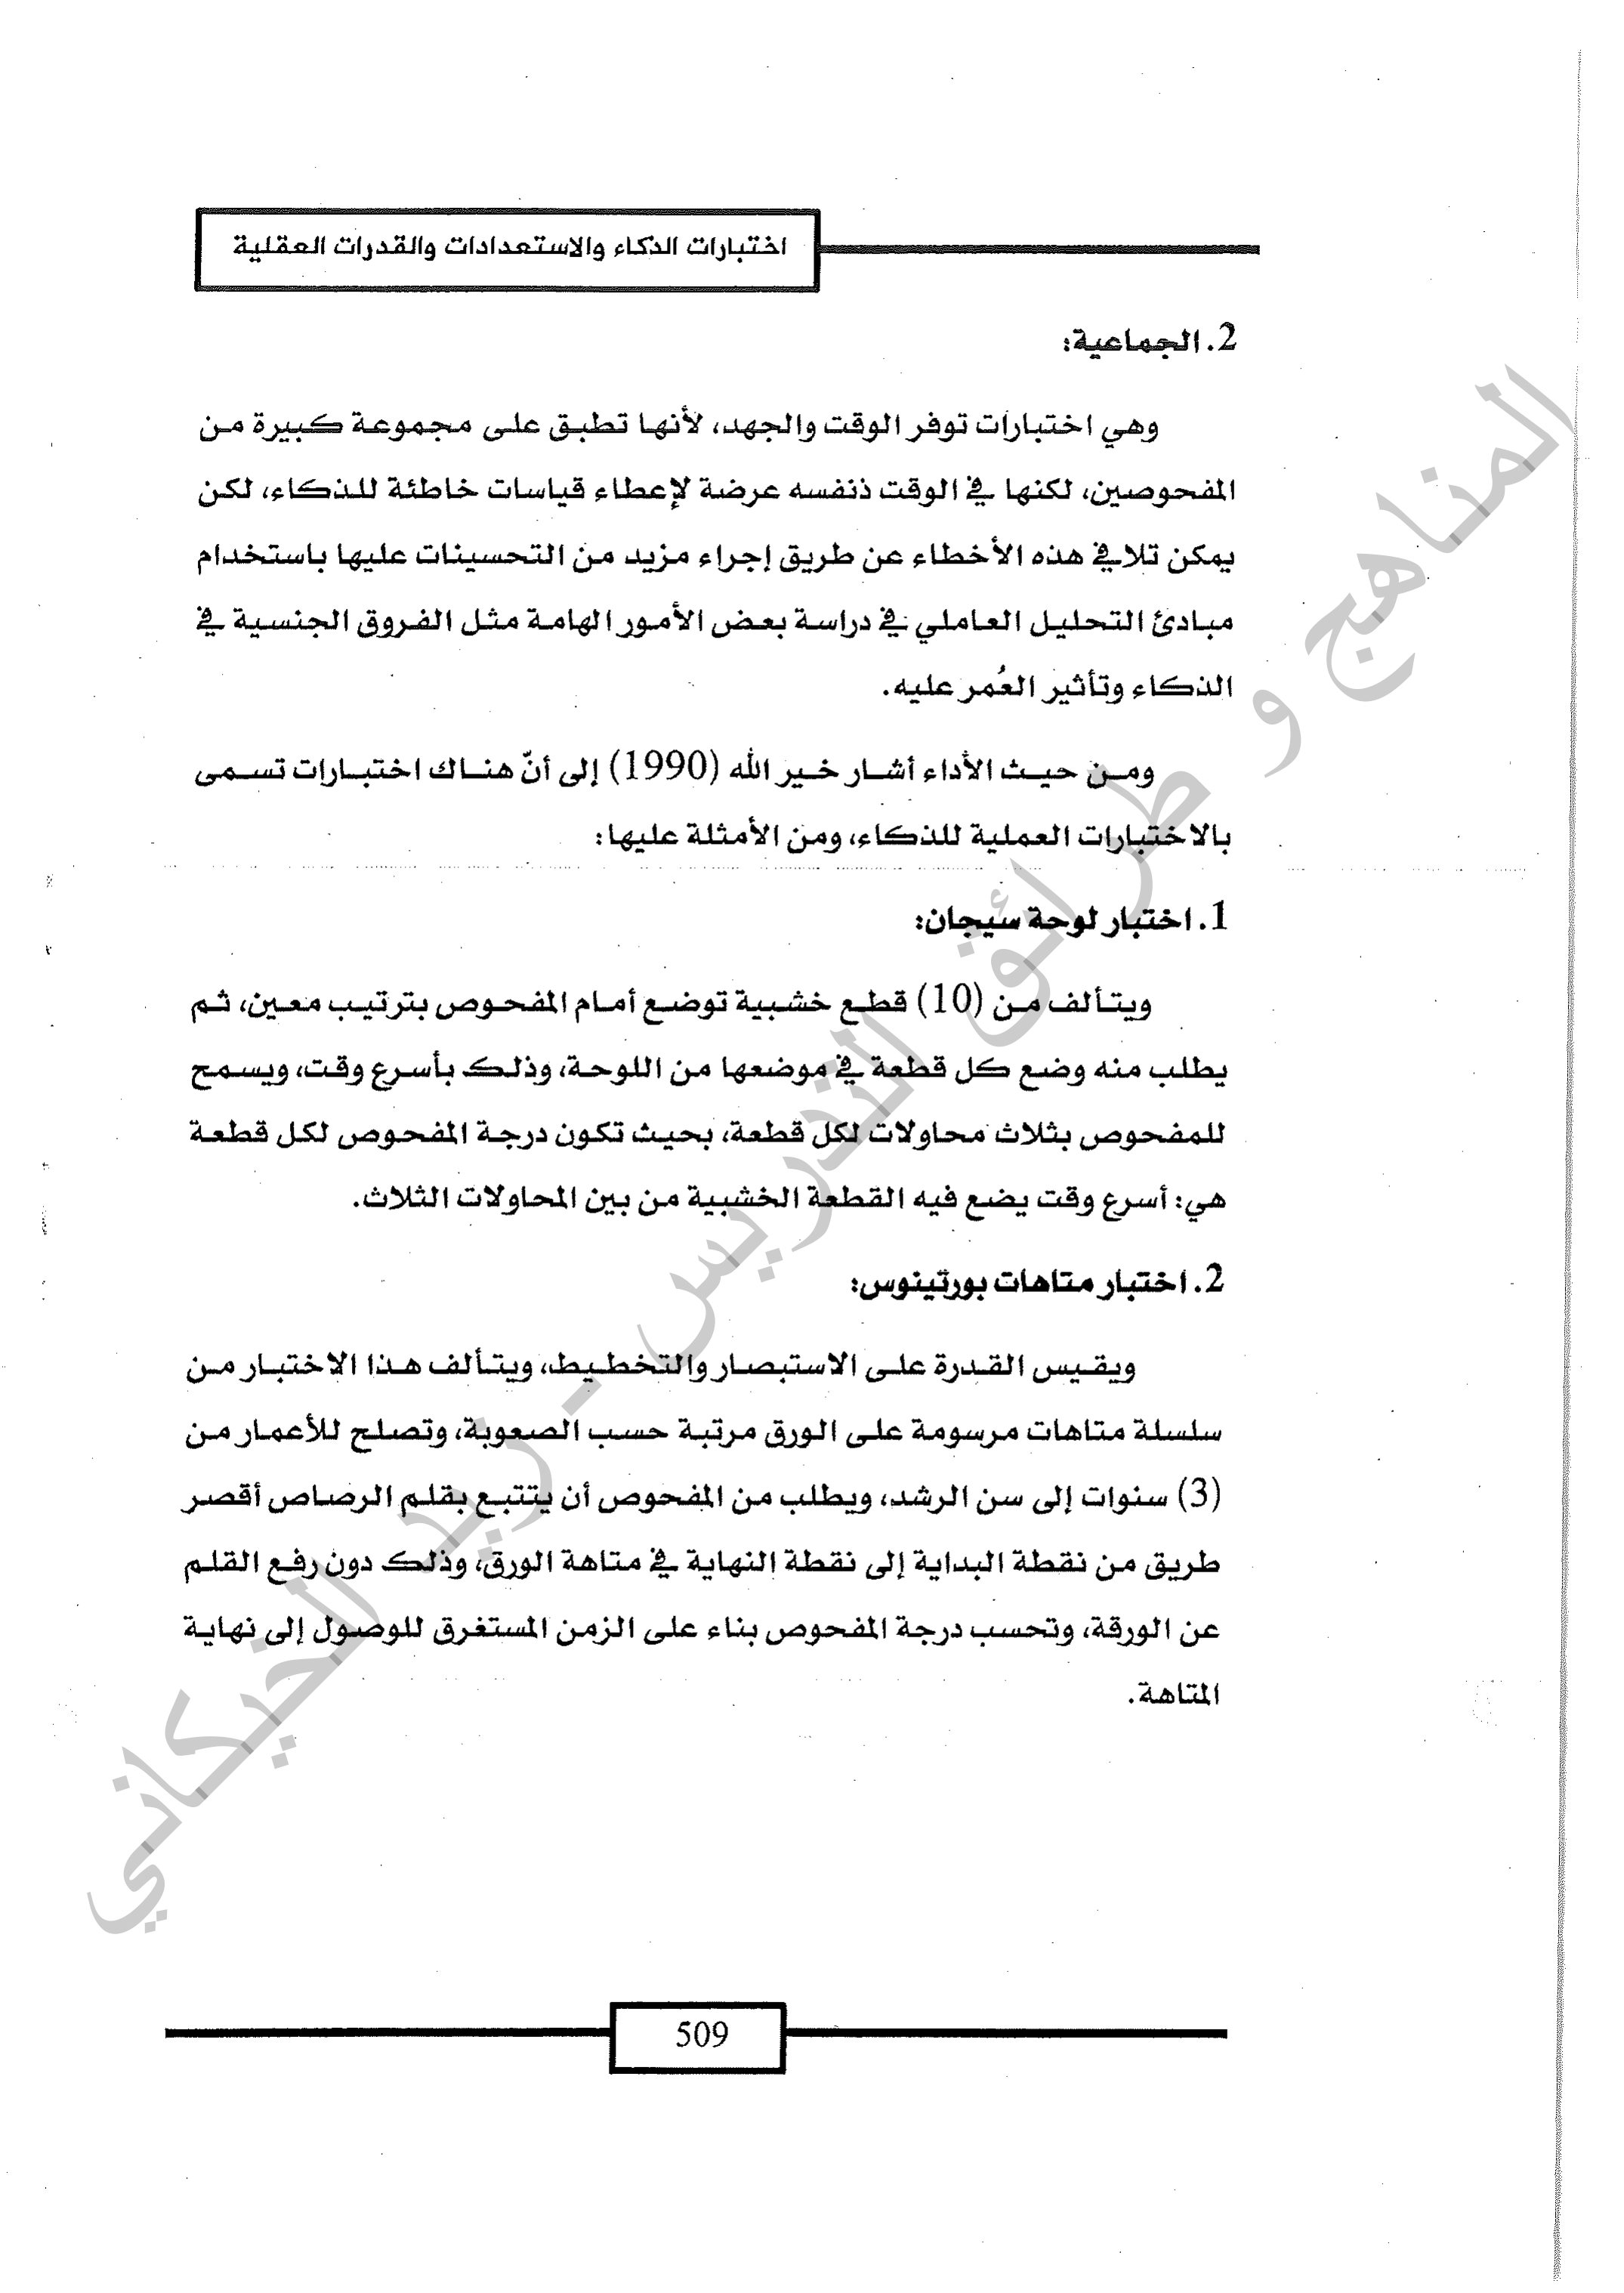 اختبارات الذكاء والاستعدادات والقدرات العقلية
2. الجماعية:
وهي اختبارات توفر الوقت والجهد، لأنها تطبق على مجموعة كبيرة من
المفحوصين، لكنها في الوقت ذنفسه عرضة لإعطاء قياسات خاطئة للذكاء، لكن
يمكن تلافي هذه الأخطاء عن طريق إجراء مزيد من التحسينات عليها باستخدام
مبادئ التحليل العاملي في دراسة بعض الأمور الهامة مثل الفروق الجنسية في
الذكاء وتأثير العُمر عليه.
ومن حيث الأداء أشار خير الله (1990) إلى أنّ هناك اختبارات تسمى
بالاختبارات العملية للذكاء، ومن الأمثلة عليها:
1. اختبار لوحة سيجان:
ويتألف من (10) قطع خشبية توضع أمام المفحوص بترتيب معين، ثم
يطلب منه وضع كل قطعة في موضعها من اللوحة، وذلك بأسرع وقت، ويسمح
للمفحوص بثلاث محاولات لكل قطعة، بحيث تكون درجة المفحوص لكل قطعة
هي: أسرع وقت يضع فيه القطعة الخشبية من بين المحاولات الثلاث.
2. اختبار متاهات بورتينوس:
ويقيس القدرة على الاستبصار والتخطيط، ويتألف هذا الاختبار من
سلسلة متاهات مرسومة على الورق مرتبة حسب الصعوبة، وتصلح للأعمار من
(3) سنوات إلى سن الرشد، ويطلب من المفحوص أن يتتبع بقلم الرصاص أقصر
طريق من نقطة البداية إلى نقطة النهاية في متاهة الورق، وذلك دون رفع القلم
عن الورقة، وتحسب درجة المفحوص بناء على الزمن المستغرق للوصول إلى نهاية
المتاهة.
509
المناهج و طرائق التدريس - زيد الخيكاني